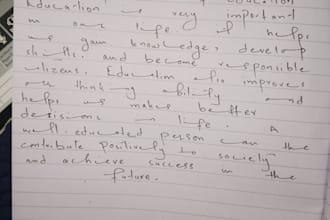 Education is very important
in our life. It helps
us gain knowledge, develop
skills, and become responsible
citizens. Education also improves
our thinking ability and
helps us make better
decisions in life. A
well-educated person can the
contribute positively to society
and achieve success in the
future.